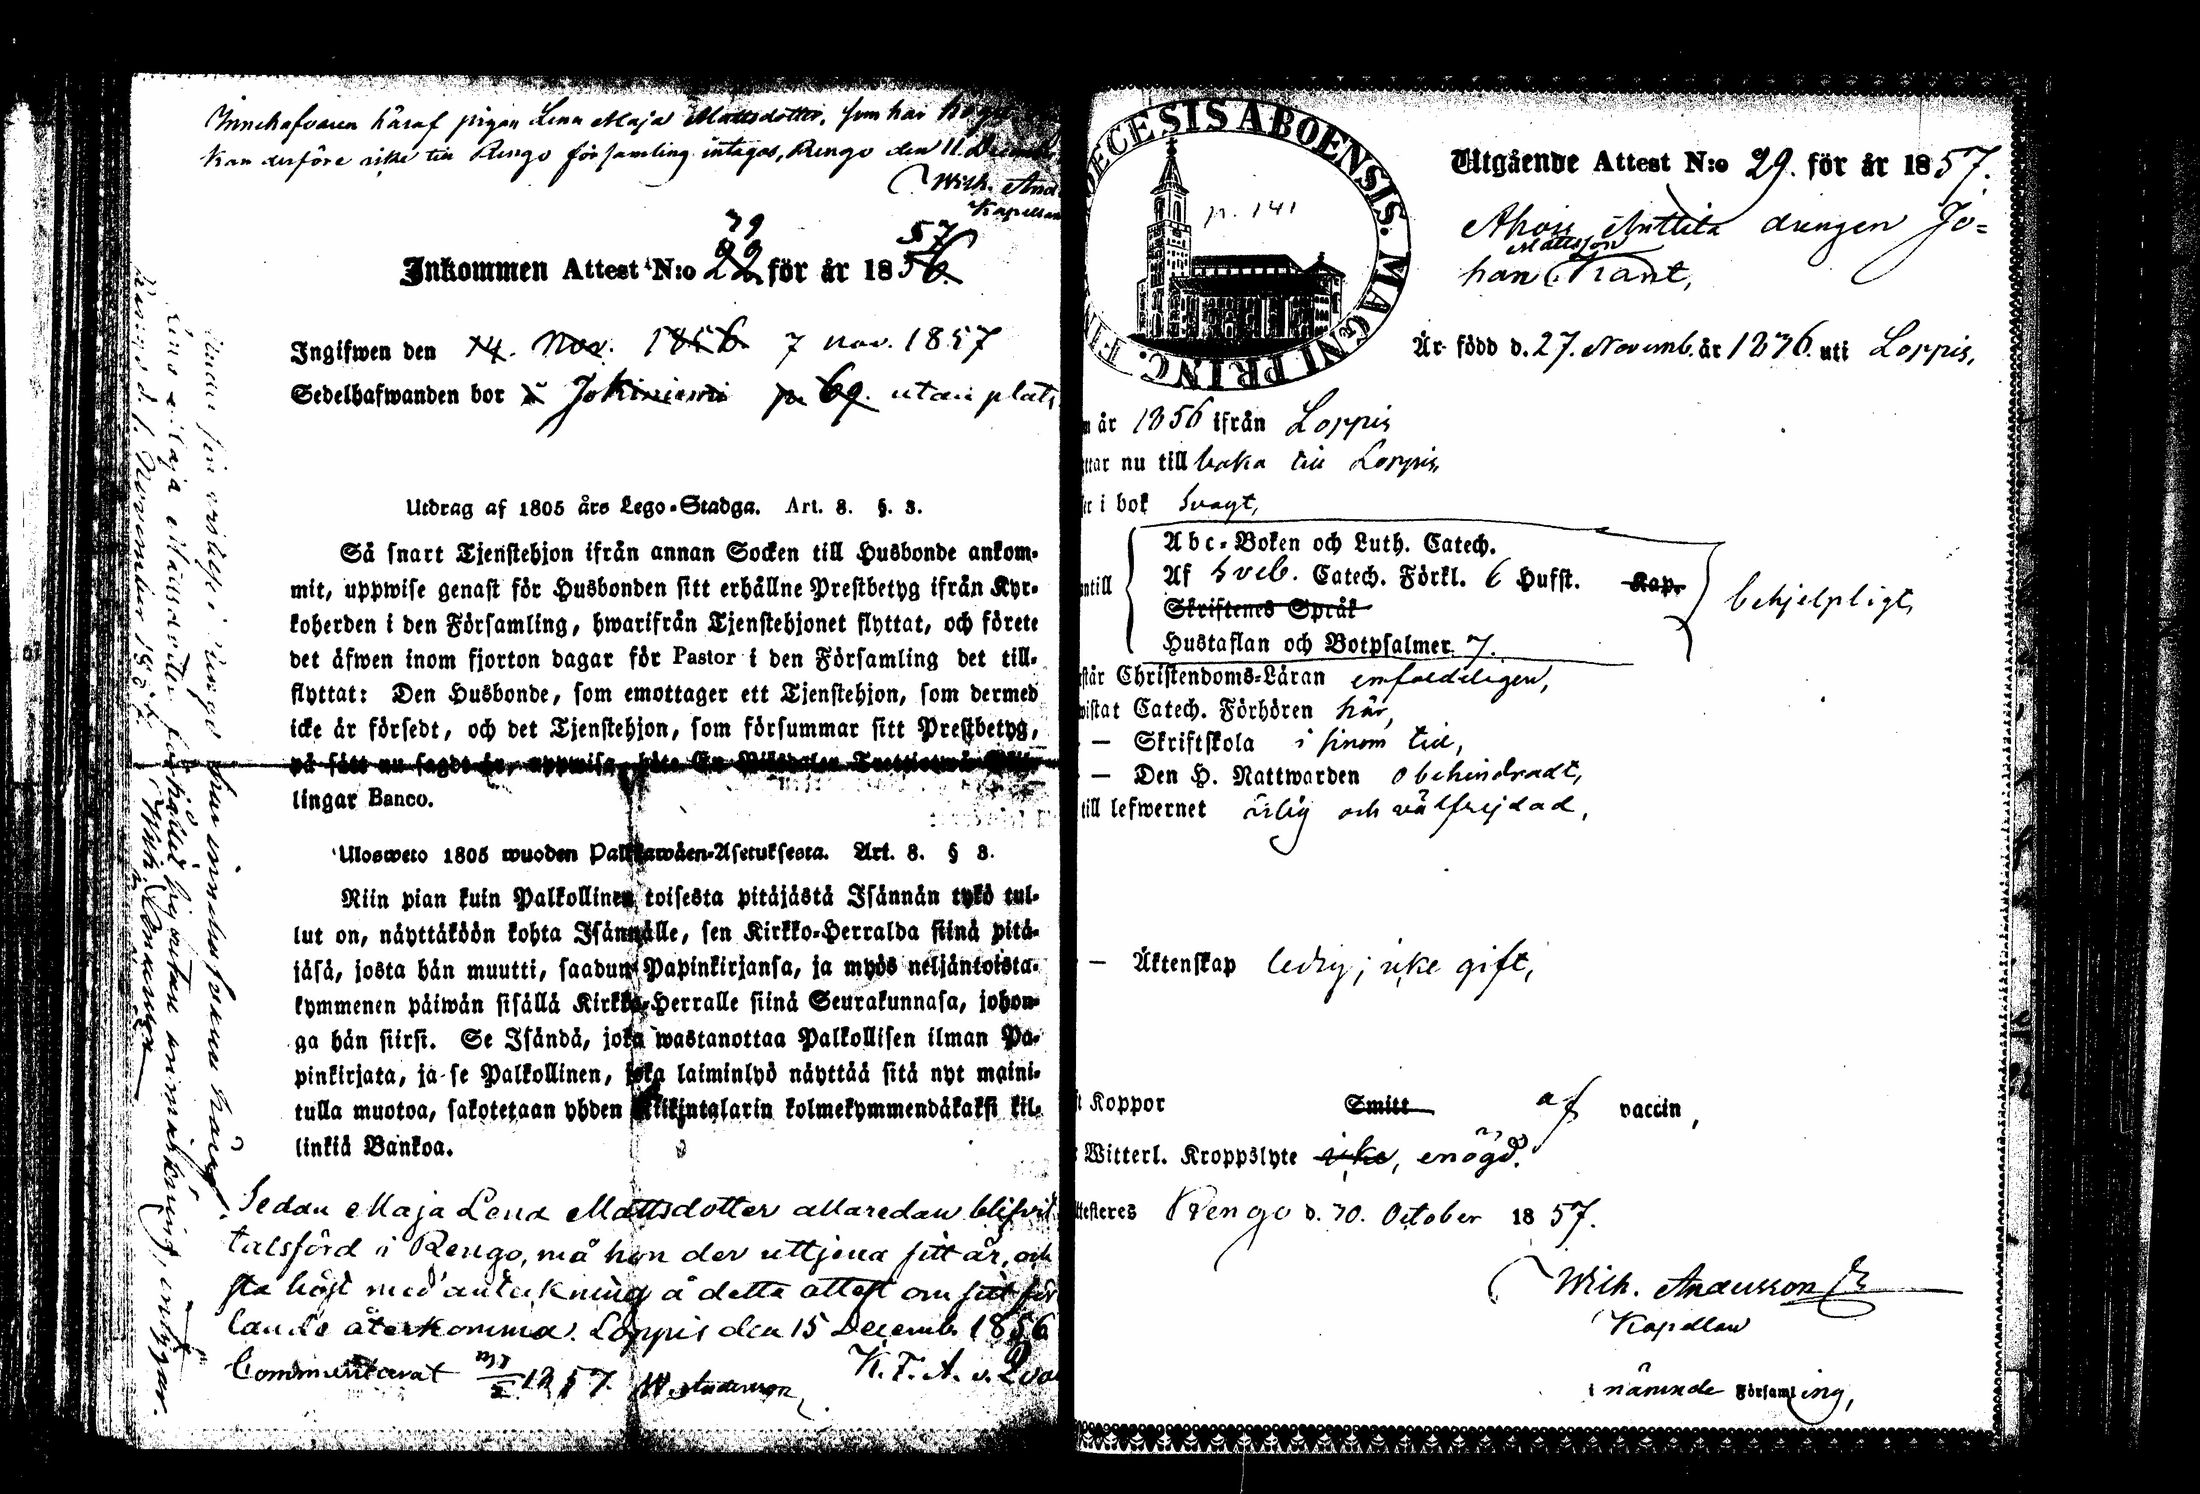 Innehafvaren häraf pigan Lena Maja Mattsdotter, som har
kan derföre icke till Rengo församling intagas, Rengo den 11. Decemb.
Wilh. And
Kapellan
29 57
Inkommen Attest N:o 22 för år 1856.
Ingifwen den 14. Nov. 1856 7 nov. 1857
Sedelhafwanden bor i Jokiniemi p. 69. utan plats
Utdrag af 1805 års Lego-Stadga. Art. 8. §. 3.
Så snart Tjenstehjon ifrån annan Socken till Husbonde ankom-
mit, uppwise genast för Husbonden sitt erhållne Prestbetyg ifrån Kyr-
koherden i den Församling, hwarifrån Tjenstehjonet flyttat, och förete
det äfwen inom fjorton dagar för Pastor i den Församling det till-
flyttat: Den Husbonde, som emottager ett Tjenstehjon, som dermed
icke är försedt, och det Tjenstehjon, som försummar sitt Prestbetyg,
på sätt nu sagdt är, uppwisa, böte En Riksdaler Trettiotwå Skil-
lingar Banco.
Ulosweto 1805 wuoden Palkkawäen-Asetuksesta. Art. 8. § 3.
Niin pian kuin Palkollinen toisesta pitäjästä Isännän tykö tul-
lut on, näyttäköön kohta Isännälle, sen Kirkko-Herralda siinä pitä-
jäsä, josta hän muutti, saadun Papinkirjansa, ja myös neljäntoista-
kymmenen päiwän sisällä Kirkko-Herralle siinä Seurakunnasa, johon-
ga hän siirsi. Se Isändä, joka wastanottaa Palkollisen ilman Pa-
pinkirjata, ja se Palkollinen, joka laiminlyö näyttää sitä nyt maini-
tulla muotoa, sakotetaan yhden Rikintalarin kolmekymmendäkaksi kil-
linkiä Bankoa.
Sedan Maja Lena Mattsdotter allaredan blifvit
talsförd i Rengo, må hon der uttjena sitt år, och
sta höst med anteckning å detta attest om sitt för
återkomma. Loppis den 15 Decemb. 1856
K. F. A. v.
1857. W. Andersson
Lena Maja Mattsdotter förhållit sig utan anmärkning, intygar.
Rengo d. 1. November
Wilh. Andersson
DIOECESIS ABOENSIS. MAGNI PRINC. FIN
p. 141
Utgående Attest N:o 29. för år 1857.
Ahois Anttila drengen Jo=
Mattsson
han Krant,
Är född d. 27. Novemb. år 1836. uti Loppis,
år 1856 ifrån Loppis
ttar nu till baka till Loppis,
i bok svagt,
Abc-Boken och Luth. Catech.
Af Sveb. Catech. Förkl. 6 Hufst. Kap.
ntill
behjelpligt,
Skriftenes Språk
Hustaflan och Botpsalmer 7.
står Christendoms-Läran enfaldeligen,
wistat Catech. Förhören här,
— Skriftskola i sinom tid,
— Den H. Nattwarden obehindradt,
till lefwernet ärlig och välfrejdad,
— Äktenskap ledig; icke gift,
Koppor Smitt af vaccin,
Witterl. Kroppslyte icke, enögd.
ttesteres Rengo d. 30. October 1857.
Wilh. Andersson
Kapellan
i nämnde Församling,